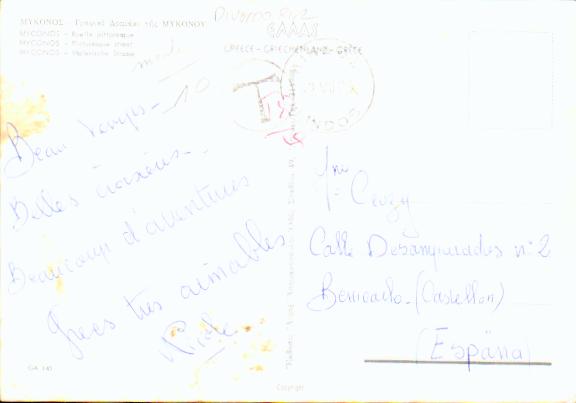 ΜΥΚΟΝΟΣ - Γραφικὸ Δρομάκι τῆς ΜΥΚΟΝΟΥ
MYCONOS - Ruelle pittoresque
MYCONOS - Picturesque street
MYCONOS - Malerische Strasse
ΕΛΛΑΣ
GREECE - GRIECHENLAND - GRÈCE
T
Beau temps -
Belles croisières -
Beaucoup d'aventures
Grecs très aimables
Nicole
Calle Desamparados n° 2
Benicarlo - (Castellon)
(España)
GA 145
Copyright